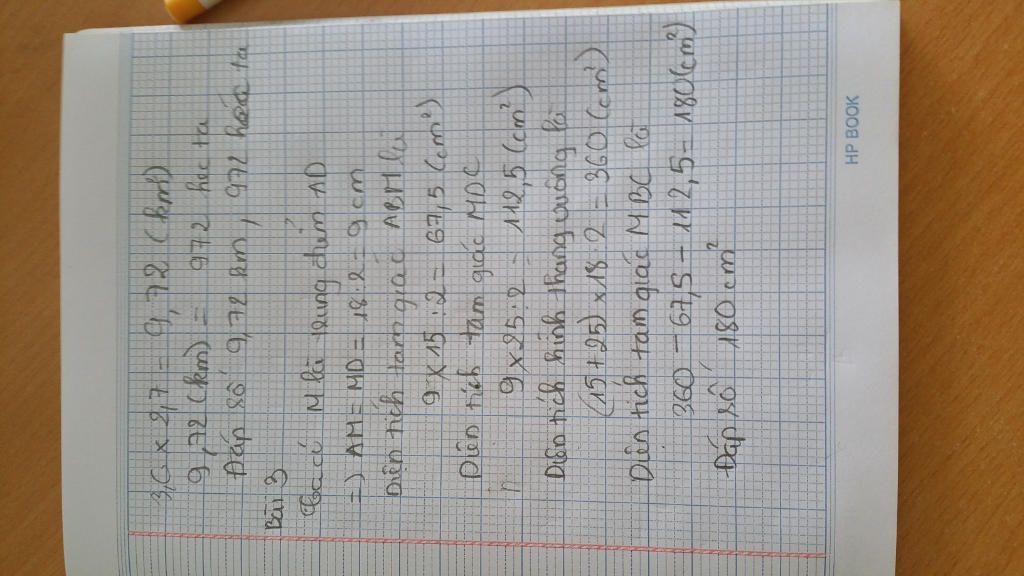 3,6 x 2,7 = 9,72 (km²)
9,72 (km) = 972 hec ta
Đáp số 9,72 km, 972 ta
Bài 3
Ta có M là trung điểm AD
=) AM = MD = 18:2 = 9 cm
Diện tích tam giác ABM là
9 x 15 : 2 = 67,5 (cm²)
Diện tích tam giác MDC
9 x 25 : 2 = 112,5 (cm²)
Diện tích hình thang vuông là
(15+25) x 18 : 2 = 360 (cm²)
Diện tích tam giác MBC là
360 - 67,5 - 112,5 = 180 (cm²)
Đáp số 180 cm²
HP BOOK